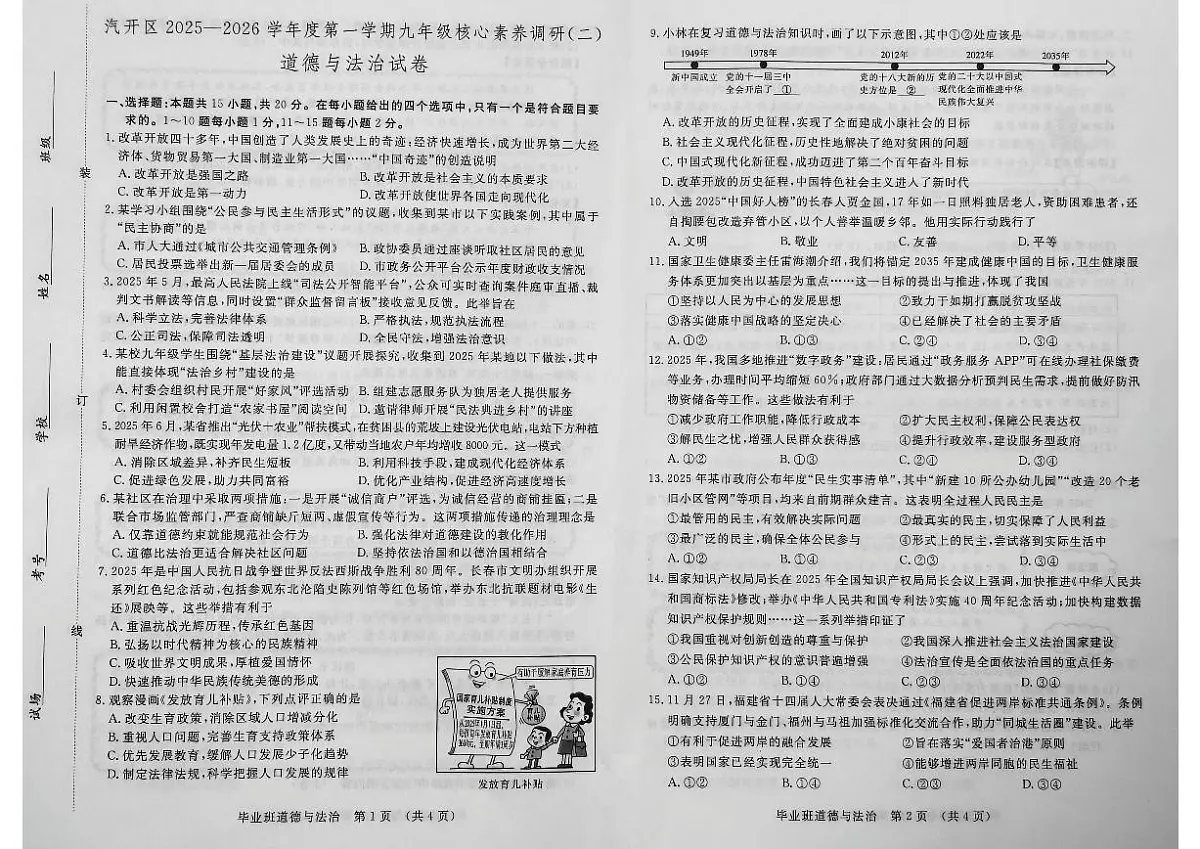 汽开区 2025—2026 学年度第一学期九年级核心素养调研(二)
道德与法治试卷
一、选择题:本题共 15 小题,共 20 分。在每小题给出的四个选项中,只有一个是符合题目要
求的。1~10 题每小题 1 分,11~15 题每小题 2 分。
1. 改革开放四十多年,中国创造了人类发展史上的奇迹:经济快速增长,成为世界第二大经
济体、货物贸易第一大国、制造业第一大国……“中国奇迹”的创造说明
A. 改革开放是强国之路 B. 改革开放是社会主义的本质要求
C. 改革开放是第一动力 D. 改革开放使世界各国走向现代化
2. 某学习小组围绕“公民参与民主生活形式”的议题,收集到某市以下实践案例,其中属于
“民主协商”的是
A. 市人大通过《城市公共交通管理条例》 B. 政协委员通过座谈听取社区居民的意见
C. 居民投票选举出新一届居委会的成员 D. 市政务公开平台公示年度财政收支情况
3. 2025 年 5 月,最高人民法院上线“司法公开智能平台”,公众可实时查询案件庭审直播、裁
判文书解读等信息,同时设置“群众监督留言板”接收意见反馈。此举旨在
A. 科学立法,完善法律体系 B. 严格执法,规范执法流程
C. 公正司法,保障司法透明 D. 全民守法,增强法治意识
4. 某校九年级学生围绕“基层法治建设”议题开展探究,收集到 2025 年某地以下做法,其中
能直接体现“法治乡村”建设的是
A. 村委会组织村民开展“好家风”评选活动 B. 组建志愿服务队为独居老人提供服务
C. 利用闲置校舍打造“农家书屋”阅读空间 D. 邀请律师开展“民法典进乡村”的讲座
5. 2025 年 6 月,某省推出“光伏十农业”帮扶模式,在贫困县的荒坡上建设光伏电站,电站下方种植
耐旱经济作物,既实现年发电量 1.2 亿度,又带动当地农户年均增收 8000 元。这一模式
A. 消除区域差异,补齐民生短板 B. 利用科技手段,建成现代化经济体系
C. 促进绿色发展,助力共同富裕 D. 优化产业结构,促进经济高速度增长
6. 某社区在治理中采取两项措施:一是开展“诚信商户”评选,为诚信经营的商铺挂匾;二是
联合市场监管部门,严查商铺缺斤短两、虚假宣传等行为。这两项措施传递的治理理念是
A. 仅靠道德约束就能规范社会行为 B. 强化法律对道德建设的教化作用
C. 道德比法治更适合解决社区问题 D. 坚持依法治国和以德治国相结合
7. 2025 年是中国人民抗日战争暨世界反法西斯战争胜利 80 周年。长春市文明办组织开展
系列红色纪念活动,包括参观东北沦陷史陈列馆等红色场馆,举办东北抗联题材电影《生
还》展映等。这些举措有利于
A. 重温抗战光辉历程,传承红色基因
B. 弘扬以时代精神为核心的民族精神
C. 吸收世界文明成果,厚植爱国情怀
D. 快速推动中华民族传统美德的形成
8. 观察漫画《发放育儿补贴》,下列点评正确的是
A. 改变生育政策,消除区域人口增减分化
B. 重视人口问题,完善生育支持政策体系
C. 优先发展教育,缓解人口发展少子化趋势
D. 制定法律法规,科学把握人口发展的规律
有助于缓解家庭养育压力
国家育儿补贴制度
实施方案
发放育儿补贴
毕业班道德与法治 第 1 页 (共 4 页)
班级
姓名
学校
考号
试场
装
订
线
9. 小林在复习道德与法治知识时,画了以下示意图,其中①②处应该是
1949年 1978年 2012年 2022年 2035年
新中国成立 党的十一届三中 党的十八大新的历 党的二十大以中国式
全会开启了 ① 史方位是 ② 现代化全面推进中华
民族伟大复兴
A. 改革开放的历史征程,实现了全面建成小康社会的目标
B. 社会主义现代化征程,历史性地解决了绝对贫困的问题
C. 中国式现代化新征程,成功迈进了第二个百年奋斗目标
D. 改革开放的历史征程,中国特色社会主义进入了新时代
10. 入选 2025“中国好人榜”的长春人贾金国,17 年如一日照料独居老人,资助困难患者,还
自掏腰包改造弃管小区,以个人善举温暖乡邻。他用实际行动践行了
A. 文明 B. 敬业 C. 友善 D. 平等
11. 国家卫生健康委主任雷海潮介绍,我们将锚定 2035 年建成健康中国的目标,卫生健康服
务体系更加突出以基层为重点……这一目标的提出与推进,体现了我国
①坚持以人民为中心的发展思想 ②致力于如期打赢脱贫攻坚战
③落实健康中国战略的坚定决心 ④已经解决了社会的主要矛盾
A. ①② B. ①③ C. ②④ D. ③④
12. 2025 年,我国多地推进“数字政务”建设:居民通过“政务服务 APP”可在线办理社保缴费
等业务,办理时间平均缩短 60%;政府部门通过大数据分析预判民生需求,提前做好防汛
物资储备等工作。这些做法有利于
①减少政府工作职能,降低行政成本 ②扩大民主权利,保障公民表达权
③解民生之忧,增强人民群众获得感 ④提升行政效率,建设服务型政府
A. ①② B. ①③ C. ②④ D. ③④
13. 2025 年某市政府公布年度“民生实事清单”,其中“新建 10 所公办幼儿园”“改造 20 个老
旧小区管网”等项目,均来自前期群众建言。这表明全过程人民民主是
①最管用的民主,有效解决实际问题 ②最真实的民主,切实保障了人民利益
③最广泛的民主,确保全体公民参与 ④形式上的民主,尝试落到实际生活中
A. ①② B. ①④ C. ②③ D. ③④
14. 国家知识产权局局长在 2025 年全国知识产权局局长会议上强调,加快推进《中华人民共
和国商标法》修改;举办《中华人民共和国专利法》实施 40 周年纪念活动;加快构建数据
知识产权保护规则……这一系列举措印证了
①我国重视对创新创造的尊重与保护 ②我国深人推进社会主义法治国家建设
③公民保护知识产权的意识普遍增强 ④法治宣传是全面依法治国的重点任务
A. ①② B. ①④ C. ②③ D. ③④
15. 11 月 27 日,福建省十四届人大常委会表决通过《福建省促进两岸标准共通条例》。条例
明确支持厦门与金门、福州与马祖加强标准化交流合作,助力“同城生活圈”建设。此举
①有利于促进两岸的融合发展 ②旨在落实“爱国者治港”原则
③表明国家已经实现完全统一 ④能够增进两岸同胞的民生福祉
A. ①② B. ①④ C. ②③ D. ③④
毕业班道德与法治 第 2 页 (共 4 页)